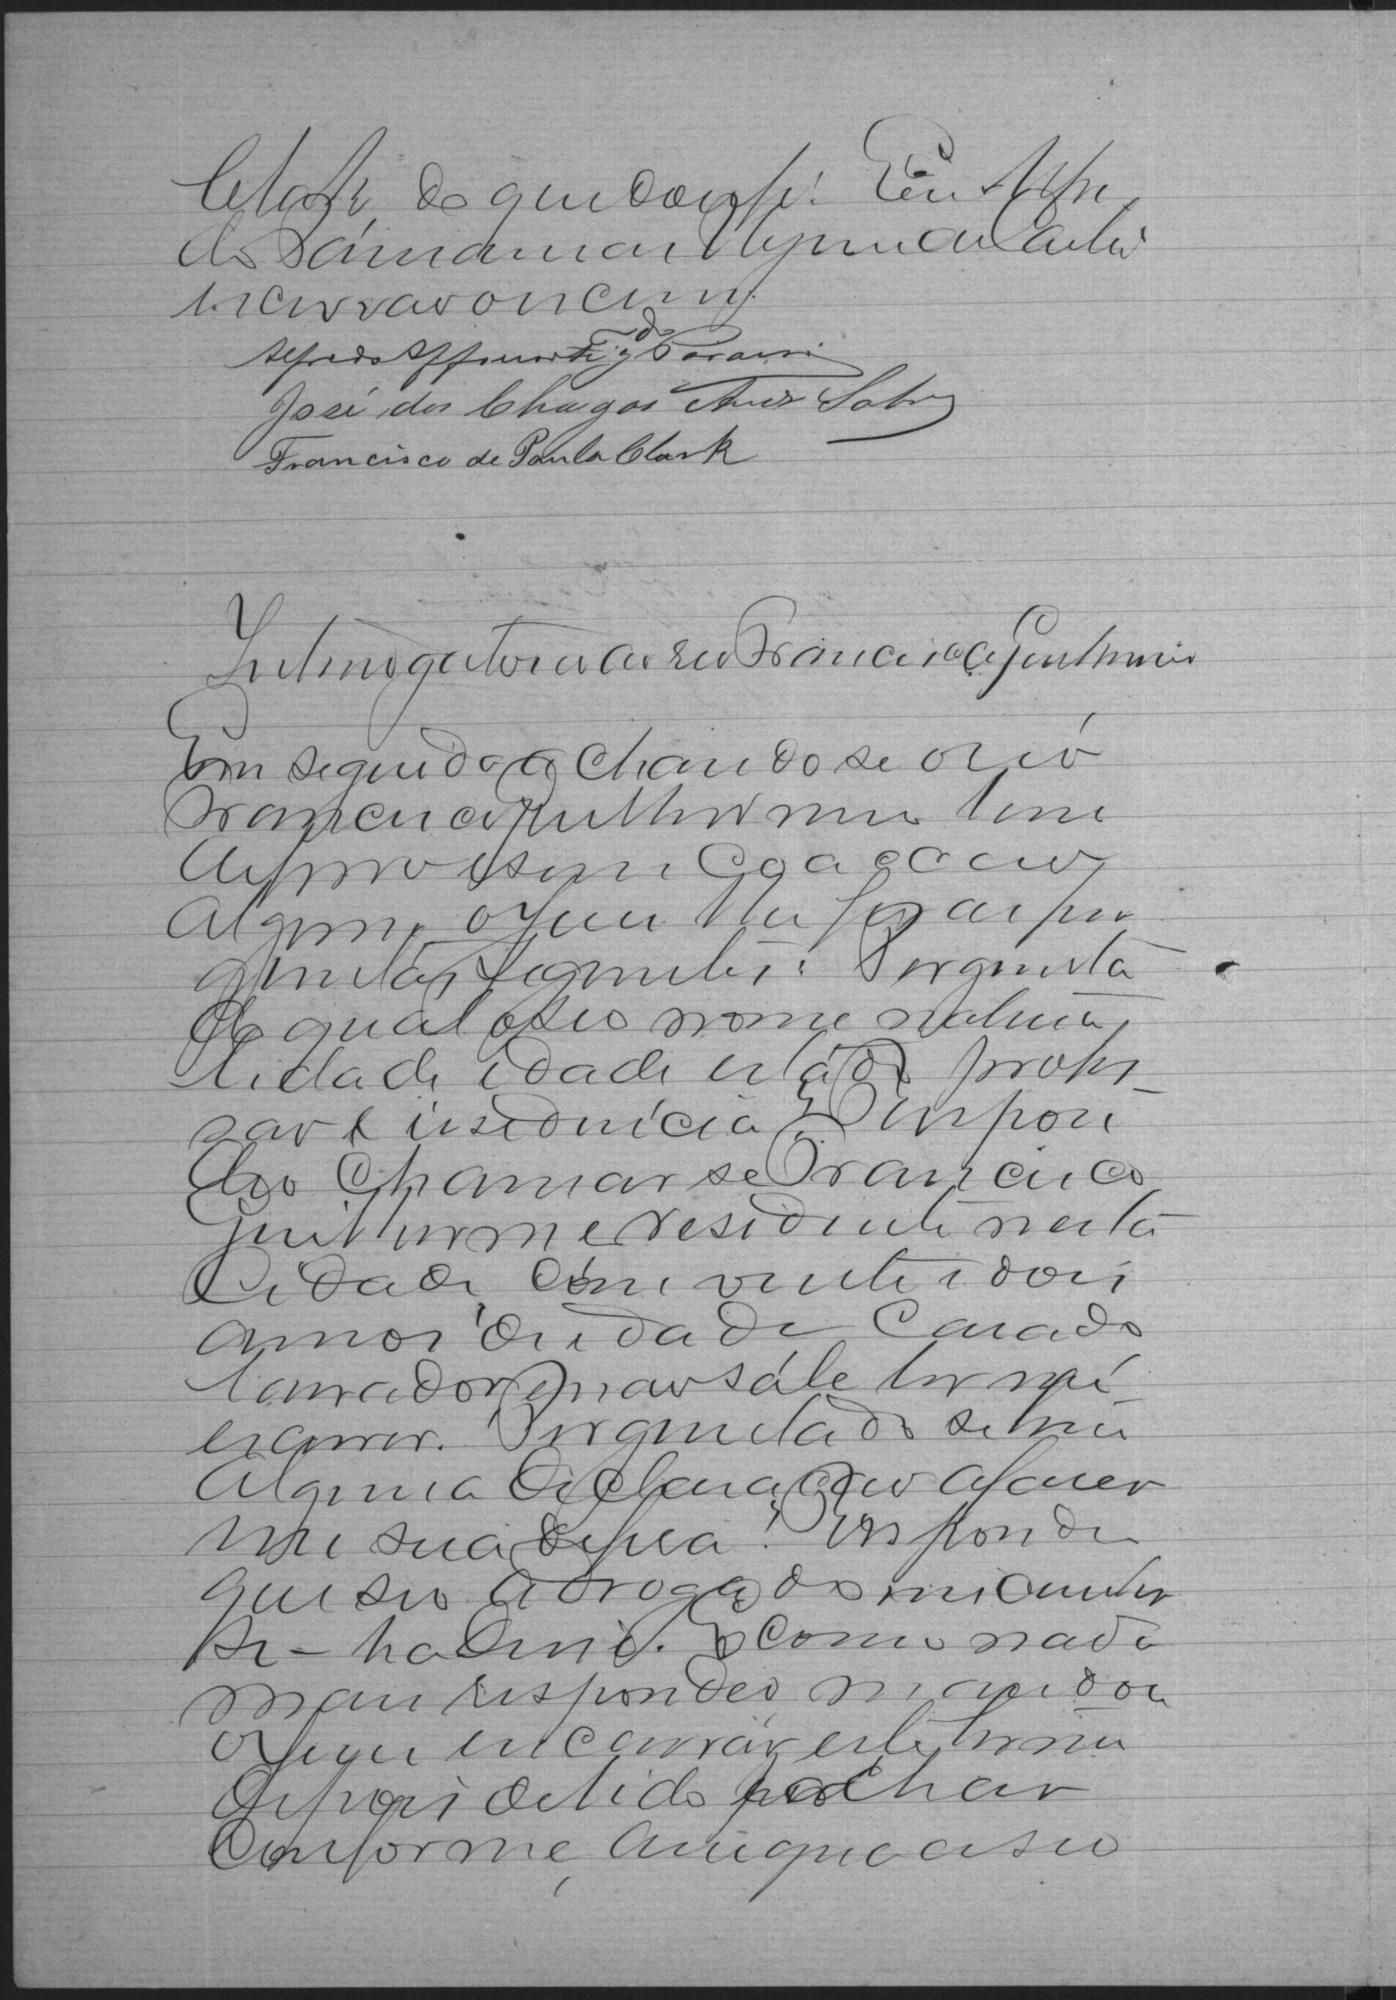 Clark, do que dou fé. Eu Alfre
do
escrivão o escrevi.
José das Chagas Alves Sobr
Francisco de Paula Clark
Interrogatorio ao reu Francisco Guilherme
Em seguida achando se o réo
Francisco Guilherme livre
de ferros e sem coacção
alguma, o Juiz lhe fez as per
guntas seguintes: Pergunta
do qual o seu nome natura
lidade idade estado profis
são e residencia? Respon
deo chamar se Francisco
Guilherme residente nesta
Cidade, com vinte e dois
annos de idade Casado
lavrador, não sabe ler ne
escrever. Perguntado se tem
alguma declaração a fazer
em sua defesa? Respondeu
que seo advogado
E como nada
mais respondeo, mandou
o Juiz encerrar este termo
depois de lido e achar
conforme, assigna a seo